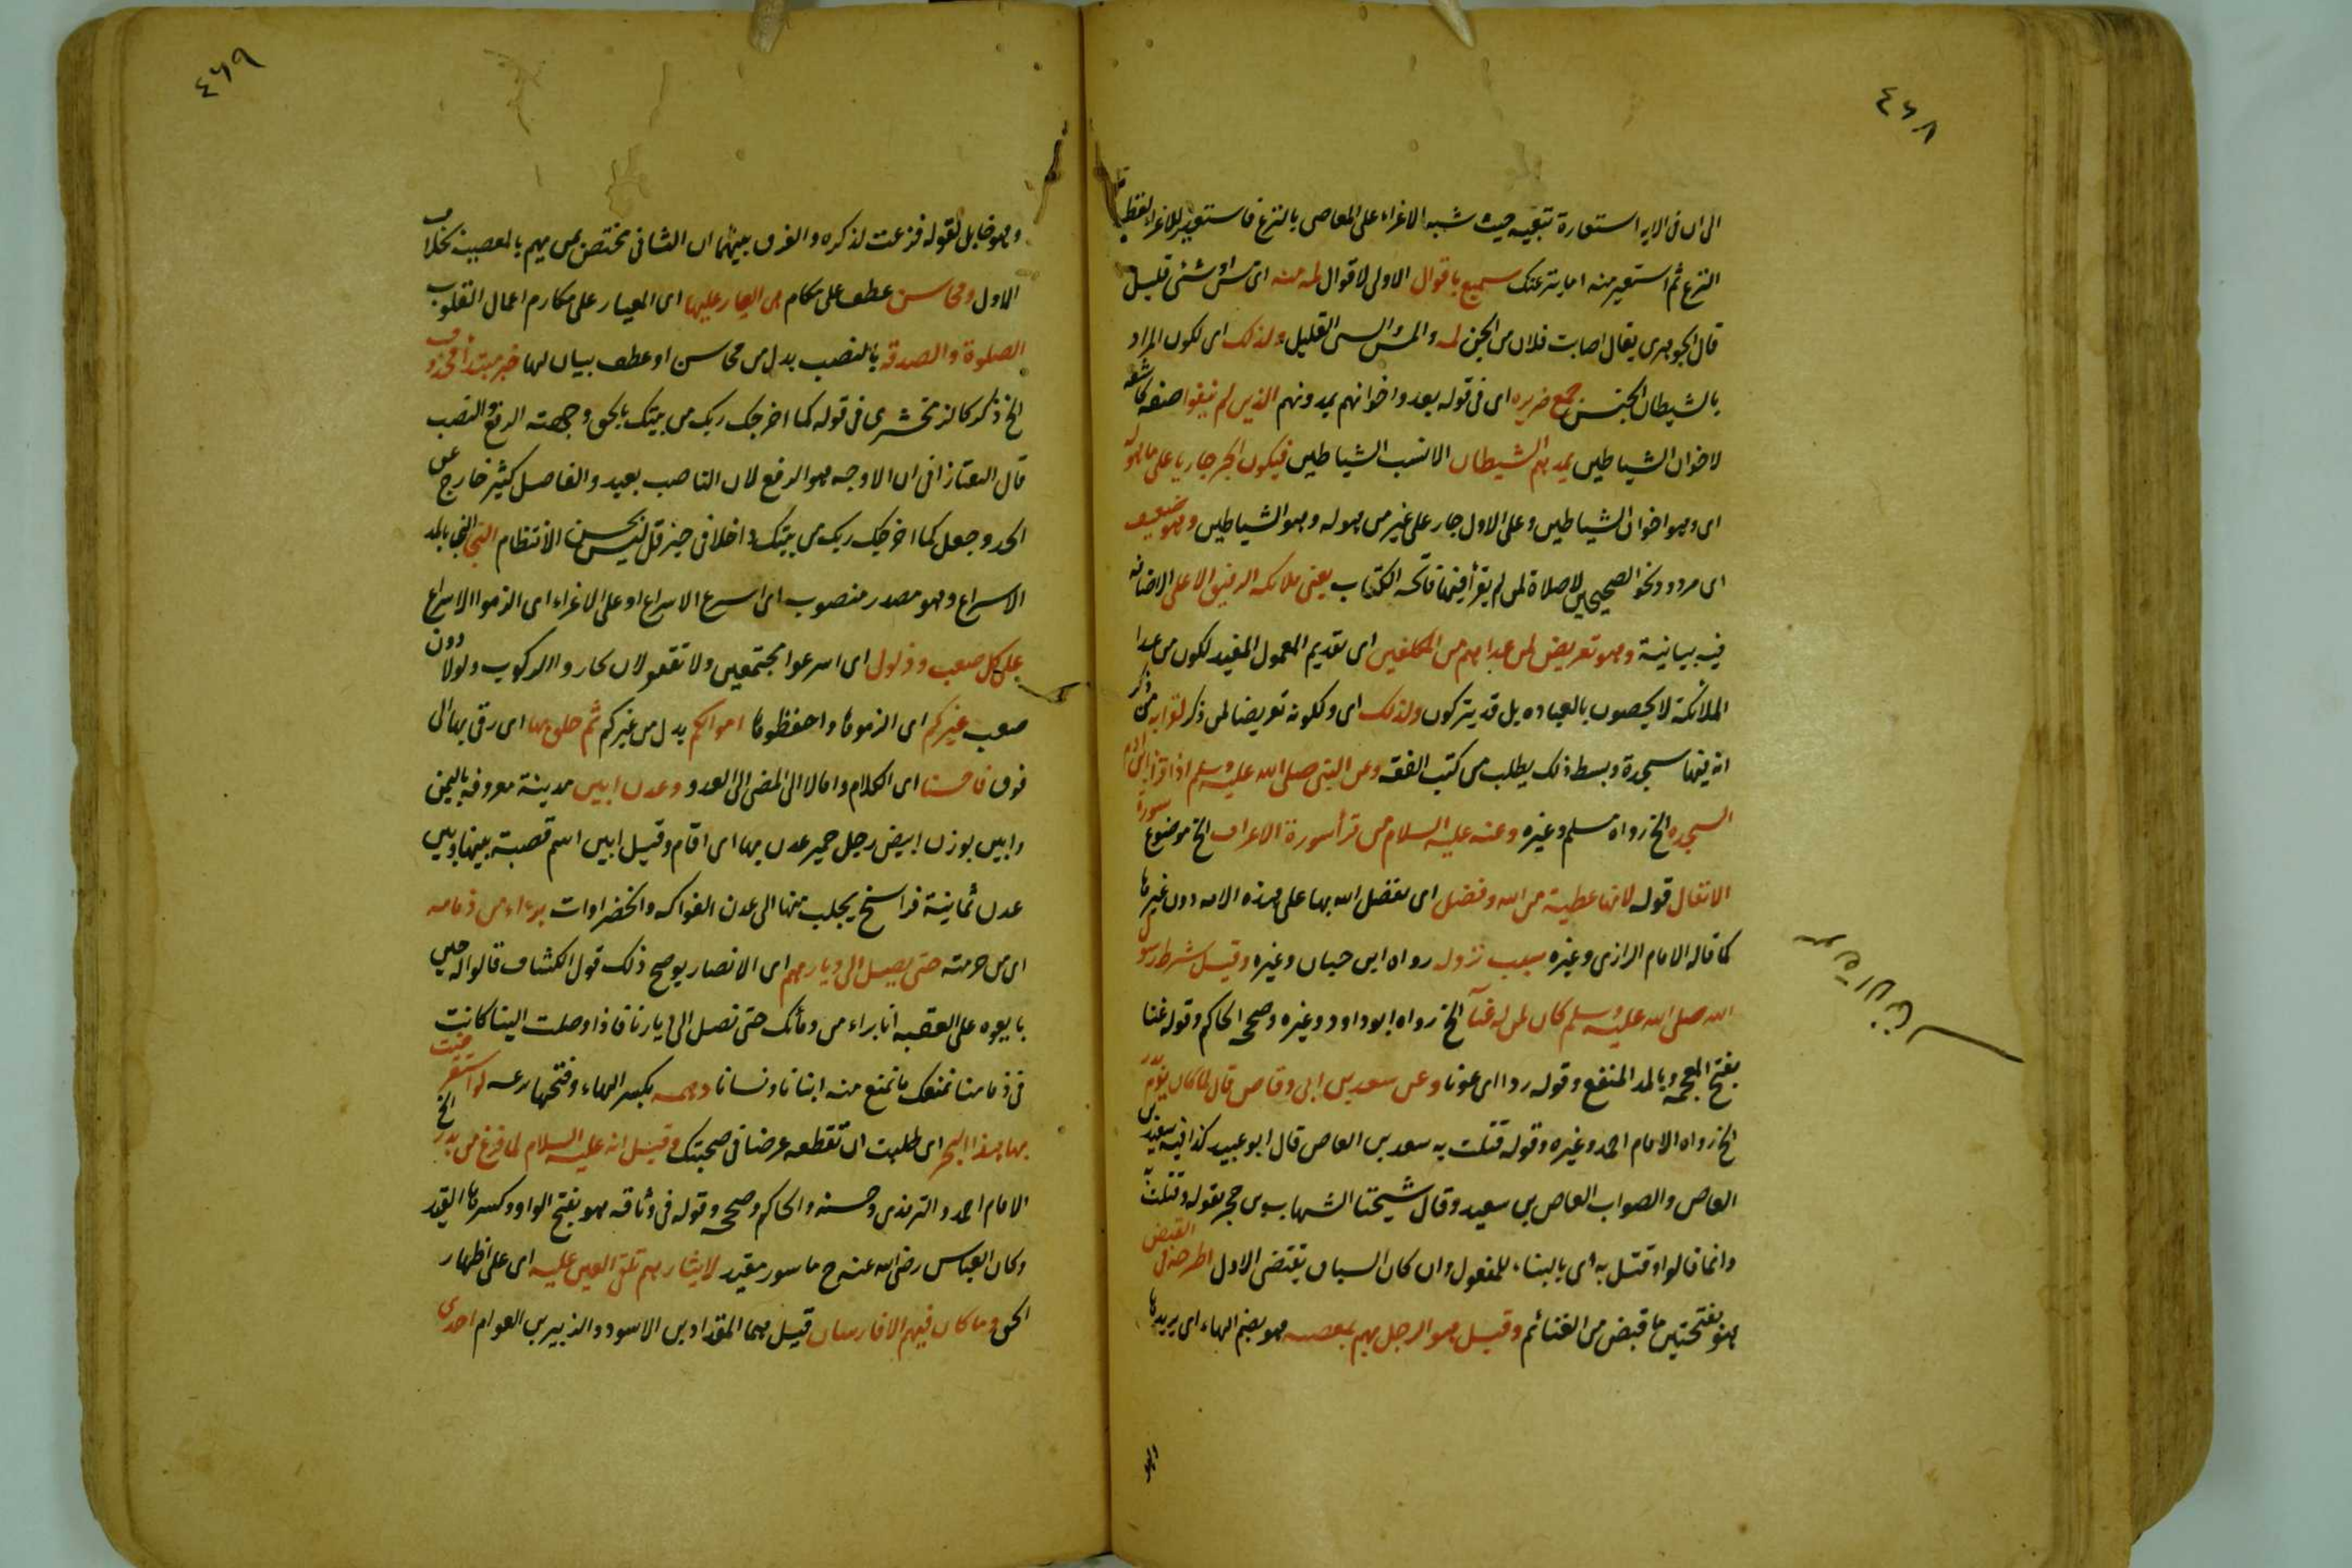 ٤٦٨
الى ان فى الايه استعارة تبعيه حيث شبه الاغراء على المعاصى بالنزغ فاستعير للاغراء لفظ
النزغ ثم استعير منه اما ينزغنك سميع باقوال الاولى لاقوال لمه منه اى مس او شئ قليل
قال الجوهرى يقال اصابت فلان من الجن لمه والمس الشئ القليل ولذلك اى لكون المراد
بالشيطان الجنس جمع ضميره اى فى قوله بعد واخوانهم يمدونهم الذين لم يتقوا صفة كاشفه
لاخوان الشياطين يمدهم الشيطان الانسب الشياطين فيكون الخبر جاريا على ما هو له
اى وهو اخوان الشياطين وعلى الاول جار على غير من هو له وهو الشياطين وهو ضعيف
اى مردود ونحو الصحيحين لا صلاة لمن لم يقرأ فيها فاتحة الكتاب يعنى ملائكه الرفيق الاعلى الاضافه
فيه بيانية وهو تعريض لمن عداهم من المكلفين اى تقديم المعمول المفيد لكون من عدا
الملائكة لا يخصون بالعباده بل قد يتركون ولذلك اى ولكونه تعريضا لمن ذكر لقرايه من ذكر
انه فيها سجدة وبسط ذلك يطلب من كتب الفقه وعن النبى صلى الله عليه وسلم اذا قرأ ابن ادم
السجده الخ رواه مسلم وغيره وعنه عليه السلام من قرأ سورة الاعراف الخ موضوع سورة
الانفال قوله لانها عطية من الله وفضل اى تفضل الله بها على هذه الامه دون غيرها
كما قاله الامام الرازى وغيره سبب نزوله رواه ابن حبان وغيره وقيل شرط رسول
الله صلى الله عليه وسلم كان لمن له غنآ الخ رواه ابو داود وغيره وصححه الحاكم وقوله غنا
بفتح المعجمه وبالمد المنفع وقوله ردا اى عونا وعن سعد بن ابى وقاص قال لما كان يوم بدر
الخ رواه الامام احمد وغيره وقوله قتلت به سعد بن العاص قال ابو عبيد كذا فيه سعيد بن
العاص والصواب العاص بن سعيد وقال شيخنا الشهاب بن حجر بقوله وقتلت
وانما قالوا وقتل به اى بالبناء للمفعول وان كان السياق يقتضى الاول اطرحه فى القبض
هو بفتحتين ما قبض من الغنائم وقيل هو الرجل يهم بمعصيه هو بضم الهاء اى يريدها
٤٦٩
وهو مقابل لقوله فزعت لذكره والفرق بينهما ان الثانى مختص بمن يهم بالمعصية بخلاف
الاول ومحاسن عطف على مكام هى العيار عليها اى المعيار على مكارم اعمال القلوب
الصلوة والصدقه بالنصب بدل من محاسن او عطف بيان لها خبر مبتدأ محذوف
الخ ذكر كالزمخشرى فى قوله كما اخرجك ربك من بيتك بالحق وجهة الرفع والنصب
قال التفتازانى ان الاوجه هو الرفع لان الناصب بعيد والفاصل كثير خارج عن
الحد وجعل كما اخرجك ربك من بيتك داخلا فى حيز قل ليس يحسن الانتظام النجا النجا بالمد
الاسراع وهو مصدر منصوب اى اسرع الاسراع او على الاغراء اى الزموا الاسراع
على كل صعب وذلول اى اسرعوا مجتمعين ولا تقفوا لان تختاروا للركوب ذلولا دون
صعب غيركم اى الزموها واحفظوها اموالكم بدل من غيركم ثم حلق بها اى رقى بها الى
فوق فاحسنا اى الكلام واما لا الى المضى الى العدو وعدن ابين مدينة معروفه باليمن
وابين بوزن ابيض رجل حمير عدن بها اى اقام وقيل ابين اسم قصبة بينها وبين
عدن ثمانية فراسخ يجلب منها الى عدن الفواكه والخضراوات برءاء من ذمامه
اى من حرمته حتى يصل الى ديارهم اى الانصار يوضح ذلك قول الكشاف قالوا له حين
بايعوه على العقبه انا براء من ذمامك حتى تصل الى ديارنا فاذا وصلت الينا كانت
فى ذمامنا نمنعك ما نمنع منه ابناءنا ونساءنا دهمه بكسر الهاء وفتحها لو استعرضت
بنا هذا البحر اى طلبت ان تقطعه عرضا فى صحبتك وقيل انه عليه السلام لما فرغ من بدر الخ
الامام احمد والترمذى وحسنه والحاكم وصححه وقوله فى وثاقه هو بفتح الواو وكسرها القيد
وكان العباس رضى الله عنه ح ماسور مقيد لايثارهم تلقى العير عليه اى على اظهار
الحق وما كان فيهم الا فارسان قيل هما المقداد بن الاسود والزبير بن العوام احدى